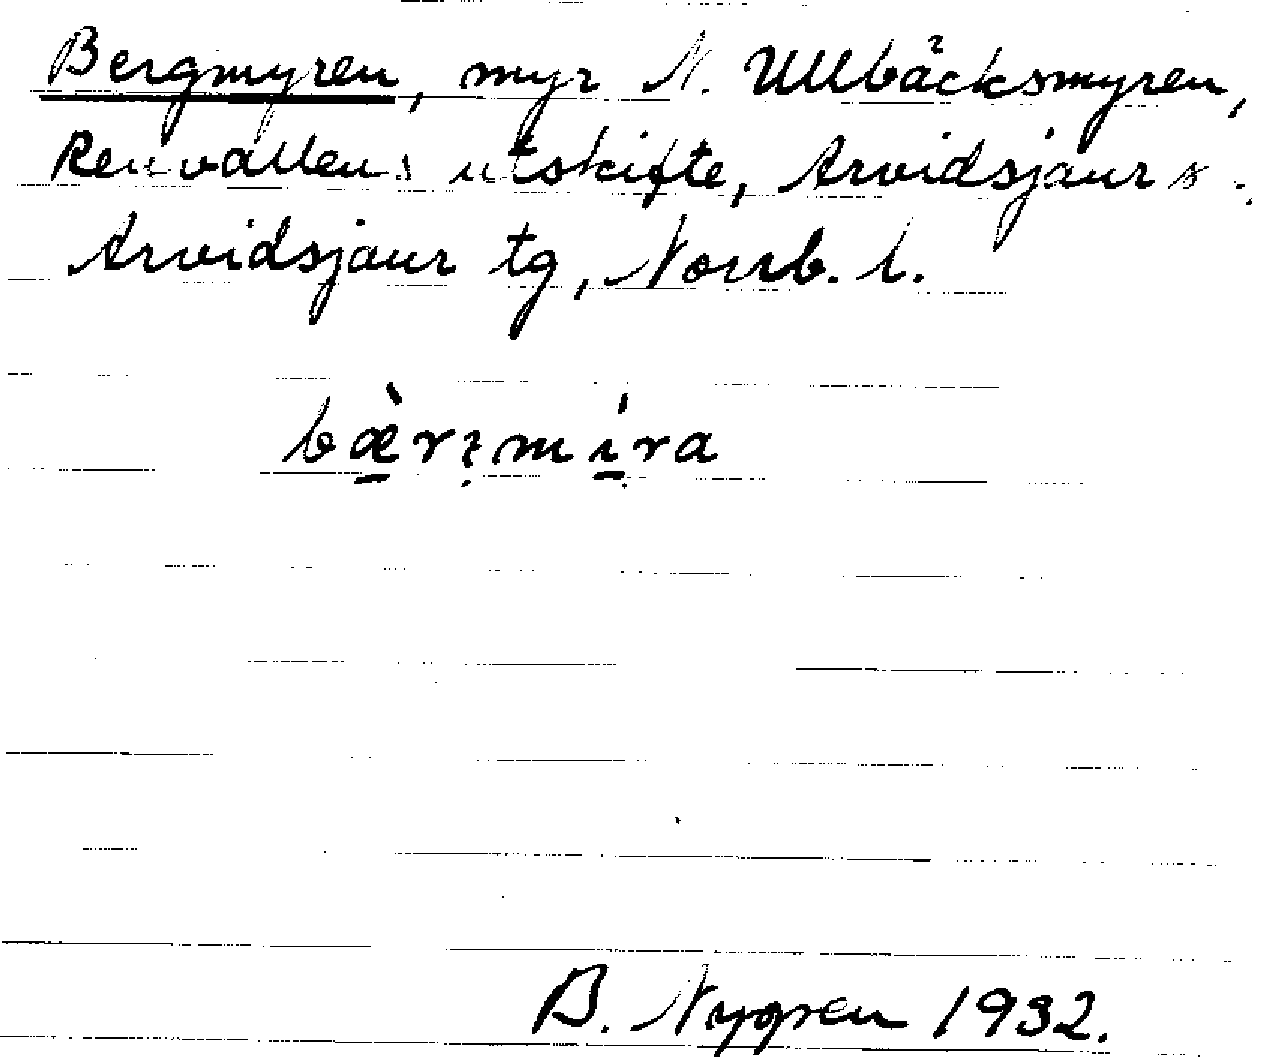 Bergmyren, myr N. Ullbäcksmyren,
Renvallens utskifte, Arvidsjaur s.
Arvidsjaur tg, Norrb. l.
B. Nygren 1932.